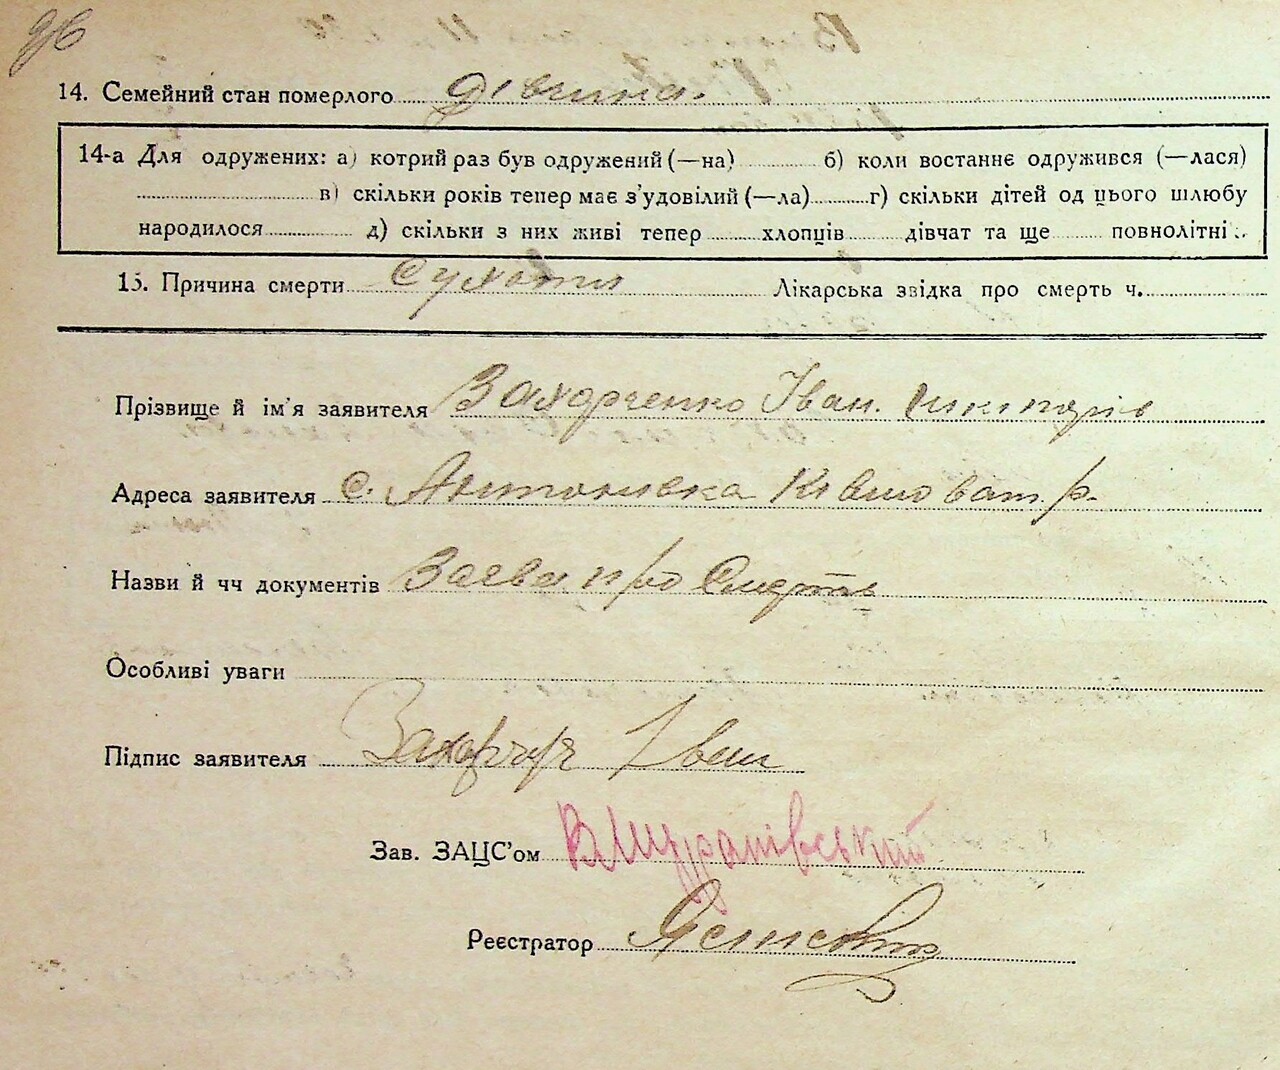 96
14. Семейний стан померлого дівчина.
14-а Для одружених: а) котрий раз був одружений (—на) б) коли востаннє одружився (—лася)
в) скільки років тепер має з'удовілий (—ла) г) скільки дітей од цього шлюбу
народилося д) скільки з них живі тепер хлопців дівчат та ще повнолітні
15. Причина смерти Сухоти Лікарська звідка про смерть ч.
Прізвище й ім'я заявителя Захарченко Іван.
Адреса заявителя с. Антонивка р.
Назви й чч документів Заева про Смерть
Особливі уваги
Підпис заявителя Іван
Зав. ЗАЦС'ом
Реєстратор